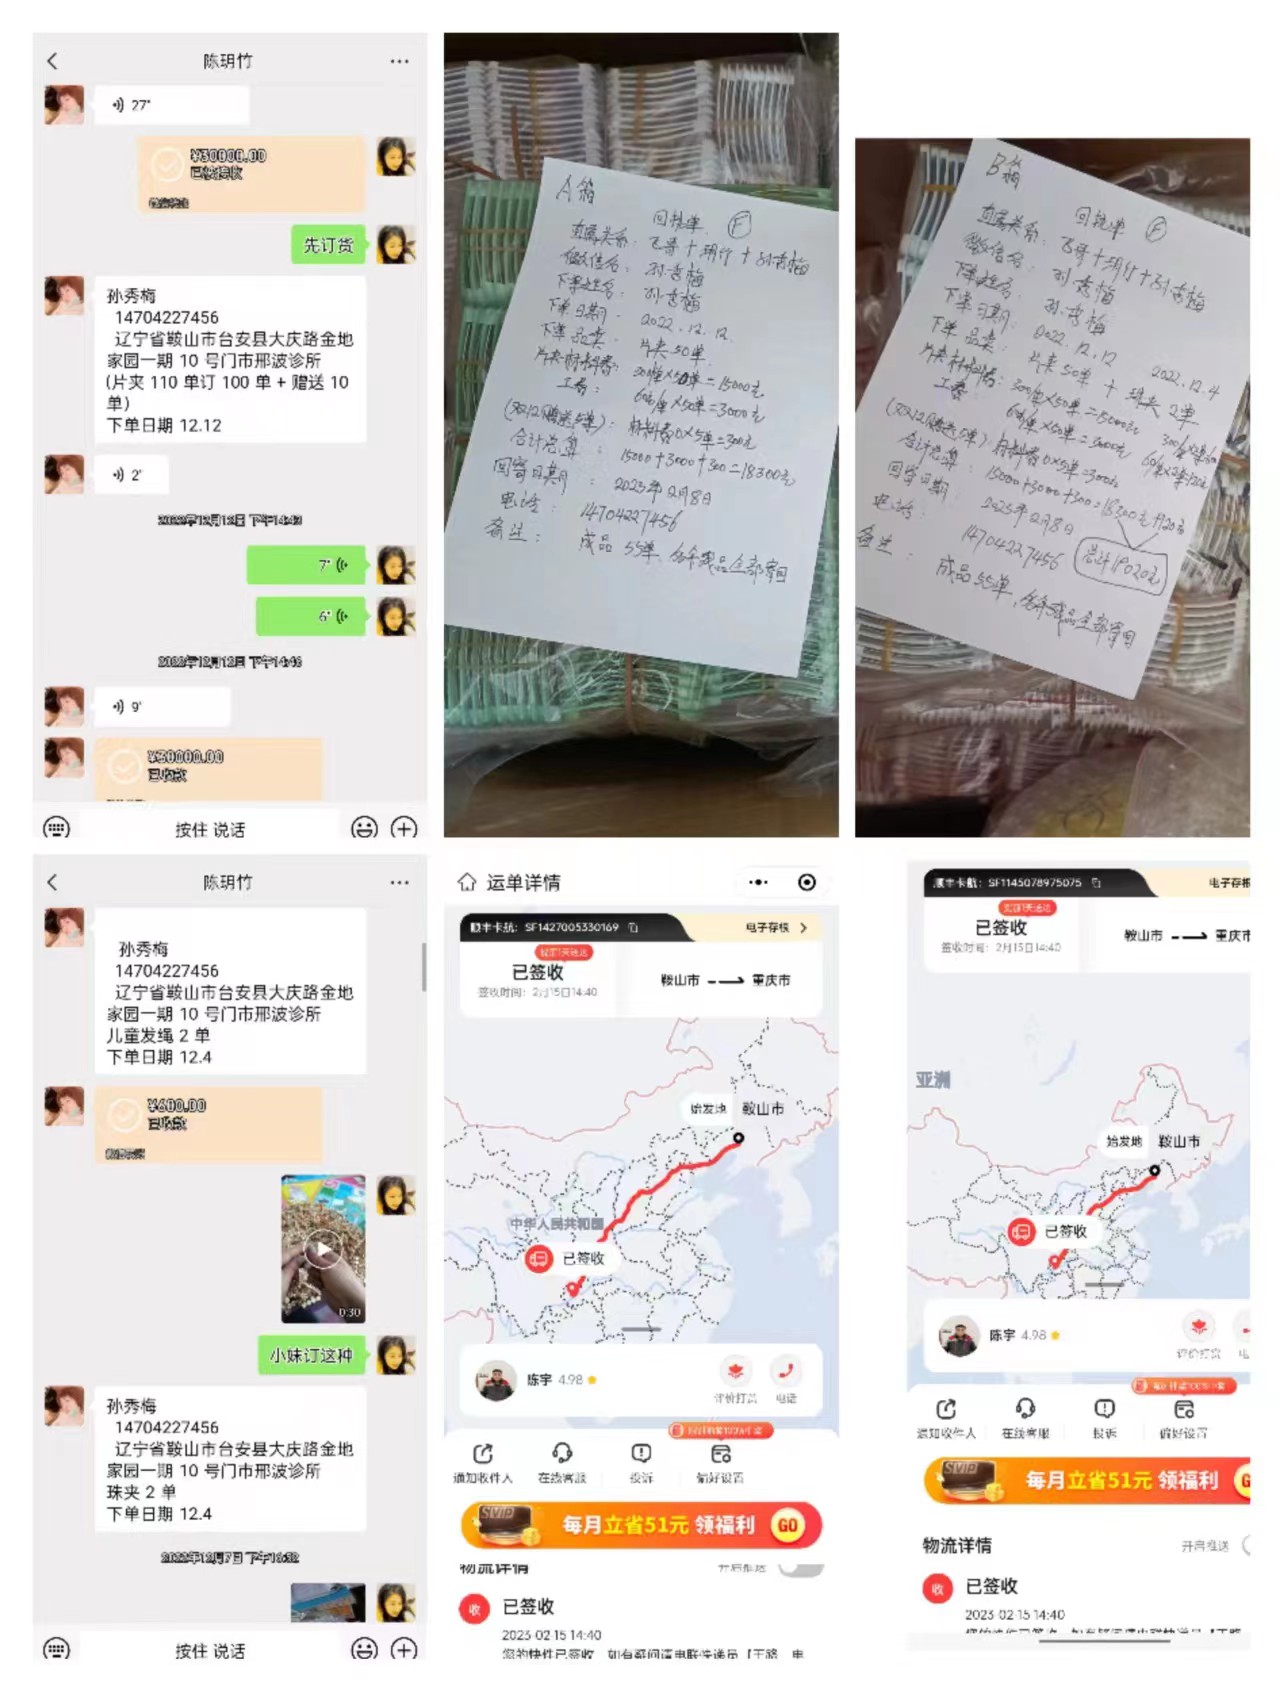 陈玥竹
27"
¥30000.00
已被接收
先订货
孙秀梅
14704227456
辽宁省鞍山市台安县大庆路金地
家园一期 10 号门市邢波诊所
(片夹 110 单订 100 单 + 赠送 10
单)
下单日期 12.12
2"
7"
6"
9"
¥30000.00
已收款
按住 说话
A箱
回执单 F
直属关系: 飞哥+玥竹+孙秀梅
微信名: 孙秀梅
下单姓名: 孙秀梅
下单日期: 2022.12.12.
下单品类: 片夹50单.
片夹材料费: 300/单×50单=15000元
工费: 60/单×50单=3000元
(双12赠送5单): 材料费0×5单=300元
合计总算: 15000+3000+300=18300元
回寄日期: 2023年2月8日
电话: 14704227456
备注: 成品 55单,
B箱
回执单 F
直属关系: 飞哥+玥竹+孙秀梅
微信名: 孙秀梅
下单姓名: 孙秀梅
下单日期: 2022.12.12 2022.12.4
下单品类: 片夹50单 + 珠夹2单
片夹材料费: 300/单×50单=15000元
工费: 60/单×50单=3000元
(双12赠送5单): 材料费0×5单=300元
合计总算: 15000+3000+300=18300元
回寄日期: 2023年2月8日
电话: 14704227456
总计19020元
备注: 成品55单,
陈玥竹
孙秀梅
14704227456
辽宁省鞍山市台安县大庆路金地
家园一期 10 号门市邢波诊所
儿童发绳 2 单
下单日期 12.4
¥600.00
已收款
0:30
小妹订这种
孙秀梅
14704227456
辽宁省鞍山市台安县大庆路金地
家园一期 10 号门市邢波诊所
珠夹 2 单
下单日期 12.4
按住 说话
运单详情
顺丰卡航: SF1427005330169
电子存根
已签收
签收时间: 2月15日14:40
鞍山市
重庆市
始发地 鞍山市
中华人民共和国
已签收
陈宇 4.98
评价打赏
电话
通知收件人
在线客服
投诉
偏好设置
SVIP
每月立省51元 领福利
GO
物流详情
开启推送
收
已签收
2023-02-15 14:40
顺丰卡航: SF1145078975075
电子存根
已签收
签收时间: 2月15日14:40
鞍山市
重庆市
亚洲
始发地 鞍山市
已签收
陈宇 4.98
评价打赏
通知收件人
在线客服
投诉
偏好设置
SVIP
每月立省51元 领福利
物流详情
开启推送
收
已签收
2023-02-15 14:40